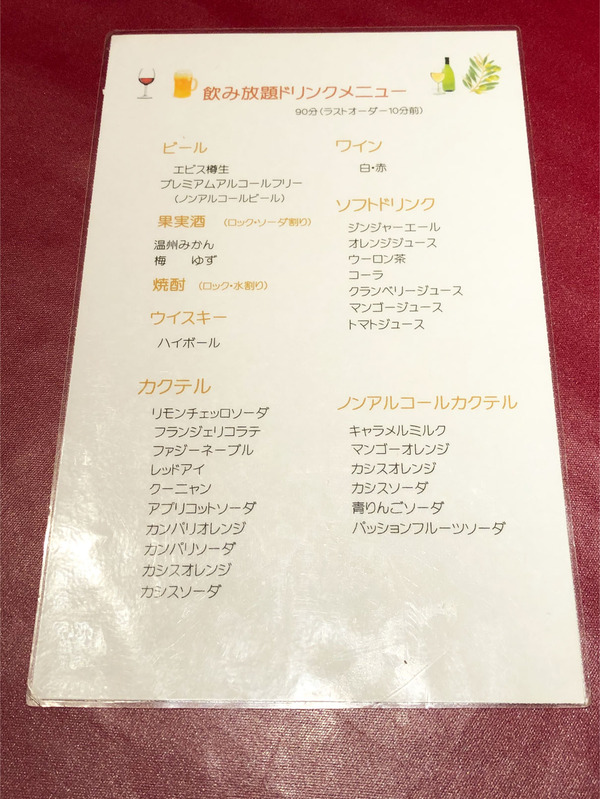 飲み放題ドリンクメニュー
90分(ラストオーダー10分前)
ビール
エビス樽生
プレミアムアルコールフリー
(ノンアルコールビール)
果実酒 (ロック・ソーダ割り)
温州みかん
梅 ゆず
焼酎 (ロック・水割り)
ウイスキー
ハイボール
カクテル
リモンチェッロソーダ
フランジェリコラテ
ファジーネーブル
レッドアイ
クーニャン
アプリコットソーダ
カンパリオレンジ
カンパリソーダ
カシスオレンジ
カシスソーダ
ワイン
白・赤
ソフトドリンク
ジンジャーエール
オレンジジュース
ウーロン茶
コーラ
クランベリージュース
マンゴージュース
トマトジュース
ノンアルコールカクテル
キャラメルミルク
マンゴーオレンジ
カシスオレンジ
カシスソーダ
青りんごソーダ
パッションフルーツソーダ